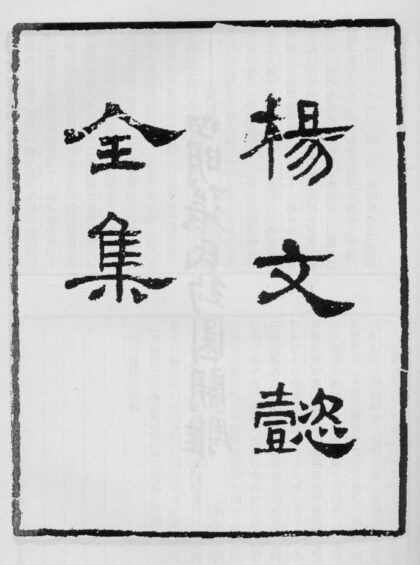 楊文懿
全集